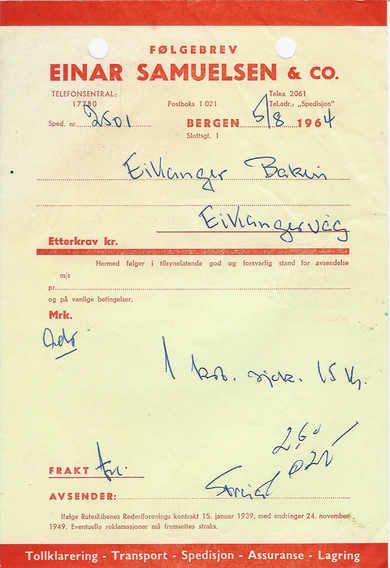 FØLGEBREV
EINAR SAMUELSEN & CO.
TELEFONSENTRAL: 17780
Postboks 1 021
Telex 2061
Tel.adr.: „Spedisjon”
Sped. nr. 2501
BERGEN 5/8 1964
Slottsgt. 1
Eikanger Bakeri
Eikangervåg
Etterkrav kr.
Hermed følger i tilsynelatende god og forsvarlig stand for avsendelse
m/s
pr.
og på vanlige betingelser.
Mrk.
Adr
1 krt. sjok. 15 kg.
2,60
0,20
FRAKT fr.
AVSENDER:
Ifølge Ruteskibenes Rederiforenings kontrakt 15. januar 1939, med endringer 24. november
1949. Eventuelle reklamasjoner må fremsettes straks.
Tollklarering - Transport - Spedisjon - Assuranse - Lagring